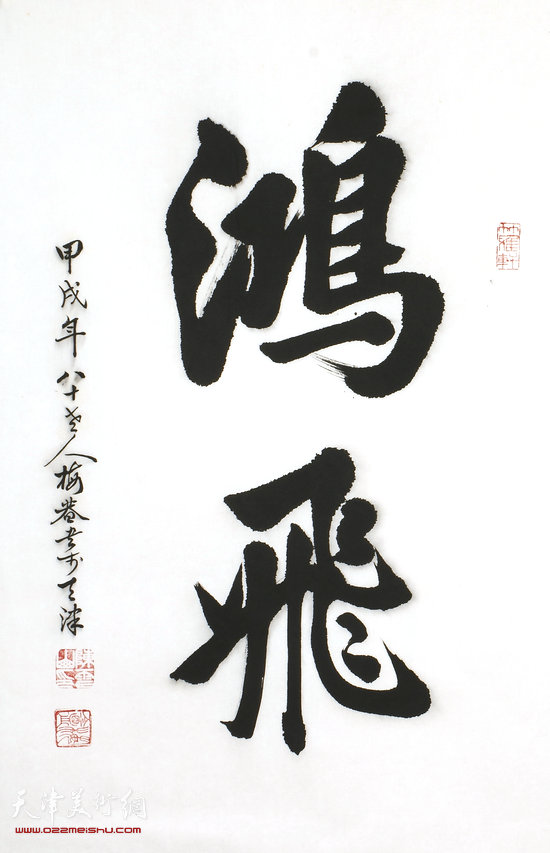 鸿飛
竹雅軒
甲戌年八十老人梅菴书于天津
天津美术網
www.022meishu.com